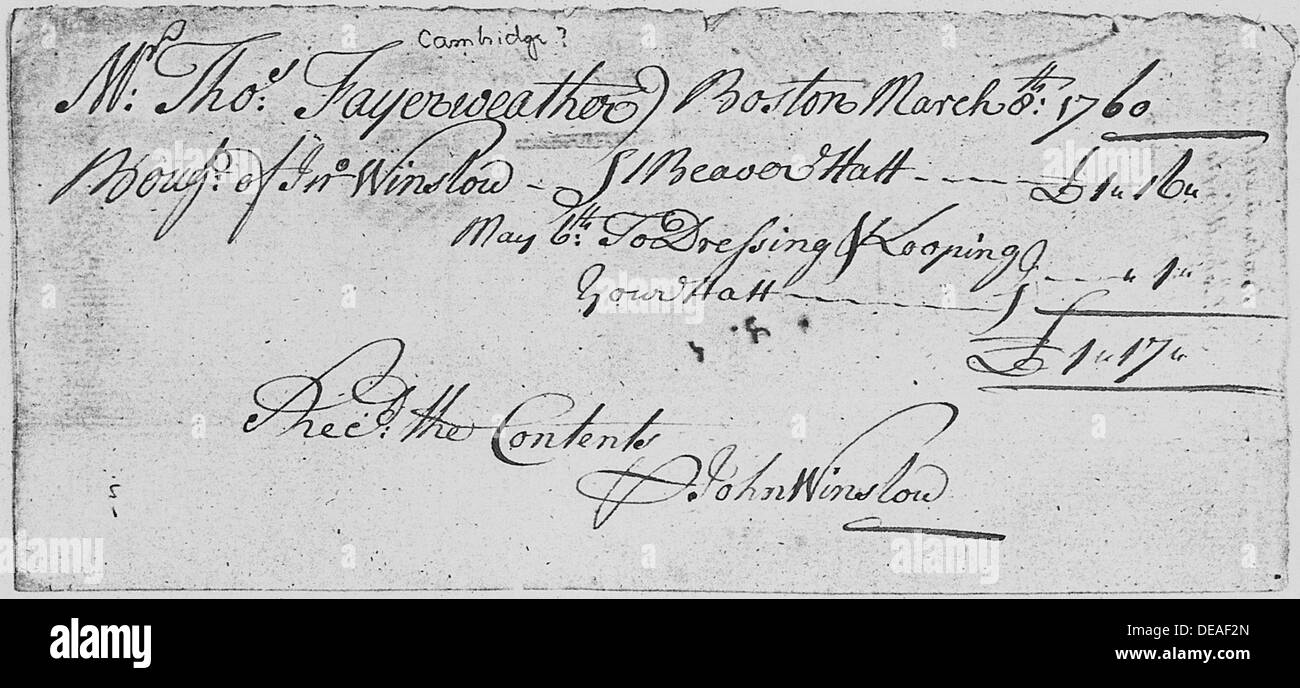 Cambridge?
Mr. Thos. Fayerweather Boston March 8th: 1760
Bougt. of Jno Winslow - 1 Beaver Hatt - - - - £ 1 " 16 "
May 6th: To Dressing & Looping
Your Hatt - - - - " 1 "
£ 1 " 17 "
Rec'd. the Contents
John Winslow
alamy
alamy
Image ID: DEAF2N
www.alamy.com